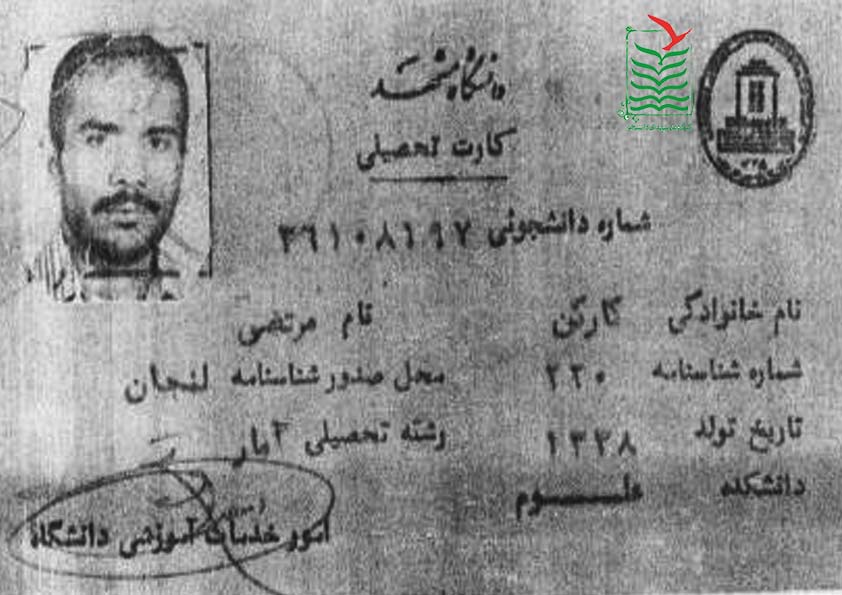 دانشگاه مشهد
کارت تحصیلی
شماره دانشجوئی ۳۶۱۰۸۱۹۷
نام خانوادگی کارکن نام مرتضی
شماره شناسنامه ۲۲۰ محل صدور شناسنامه لنجان
تاریخ تولد ۱۳۳۸ رشته تحصیلی آمار
دانشکده علوم
امور خدمات آموزشی دانشگاه